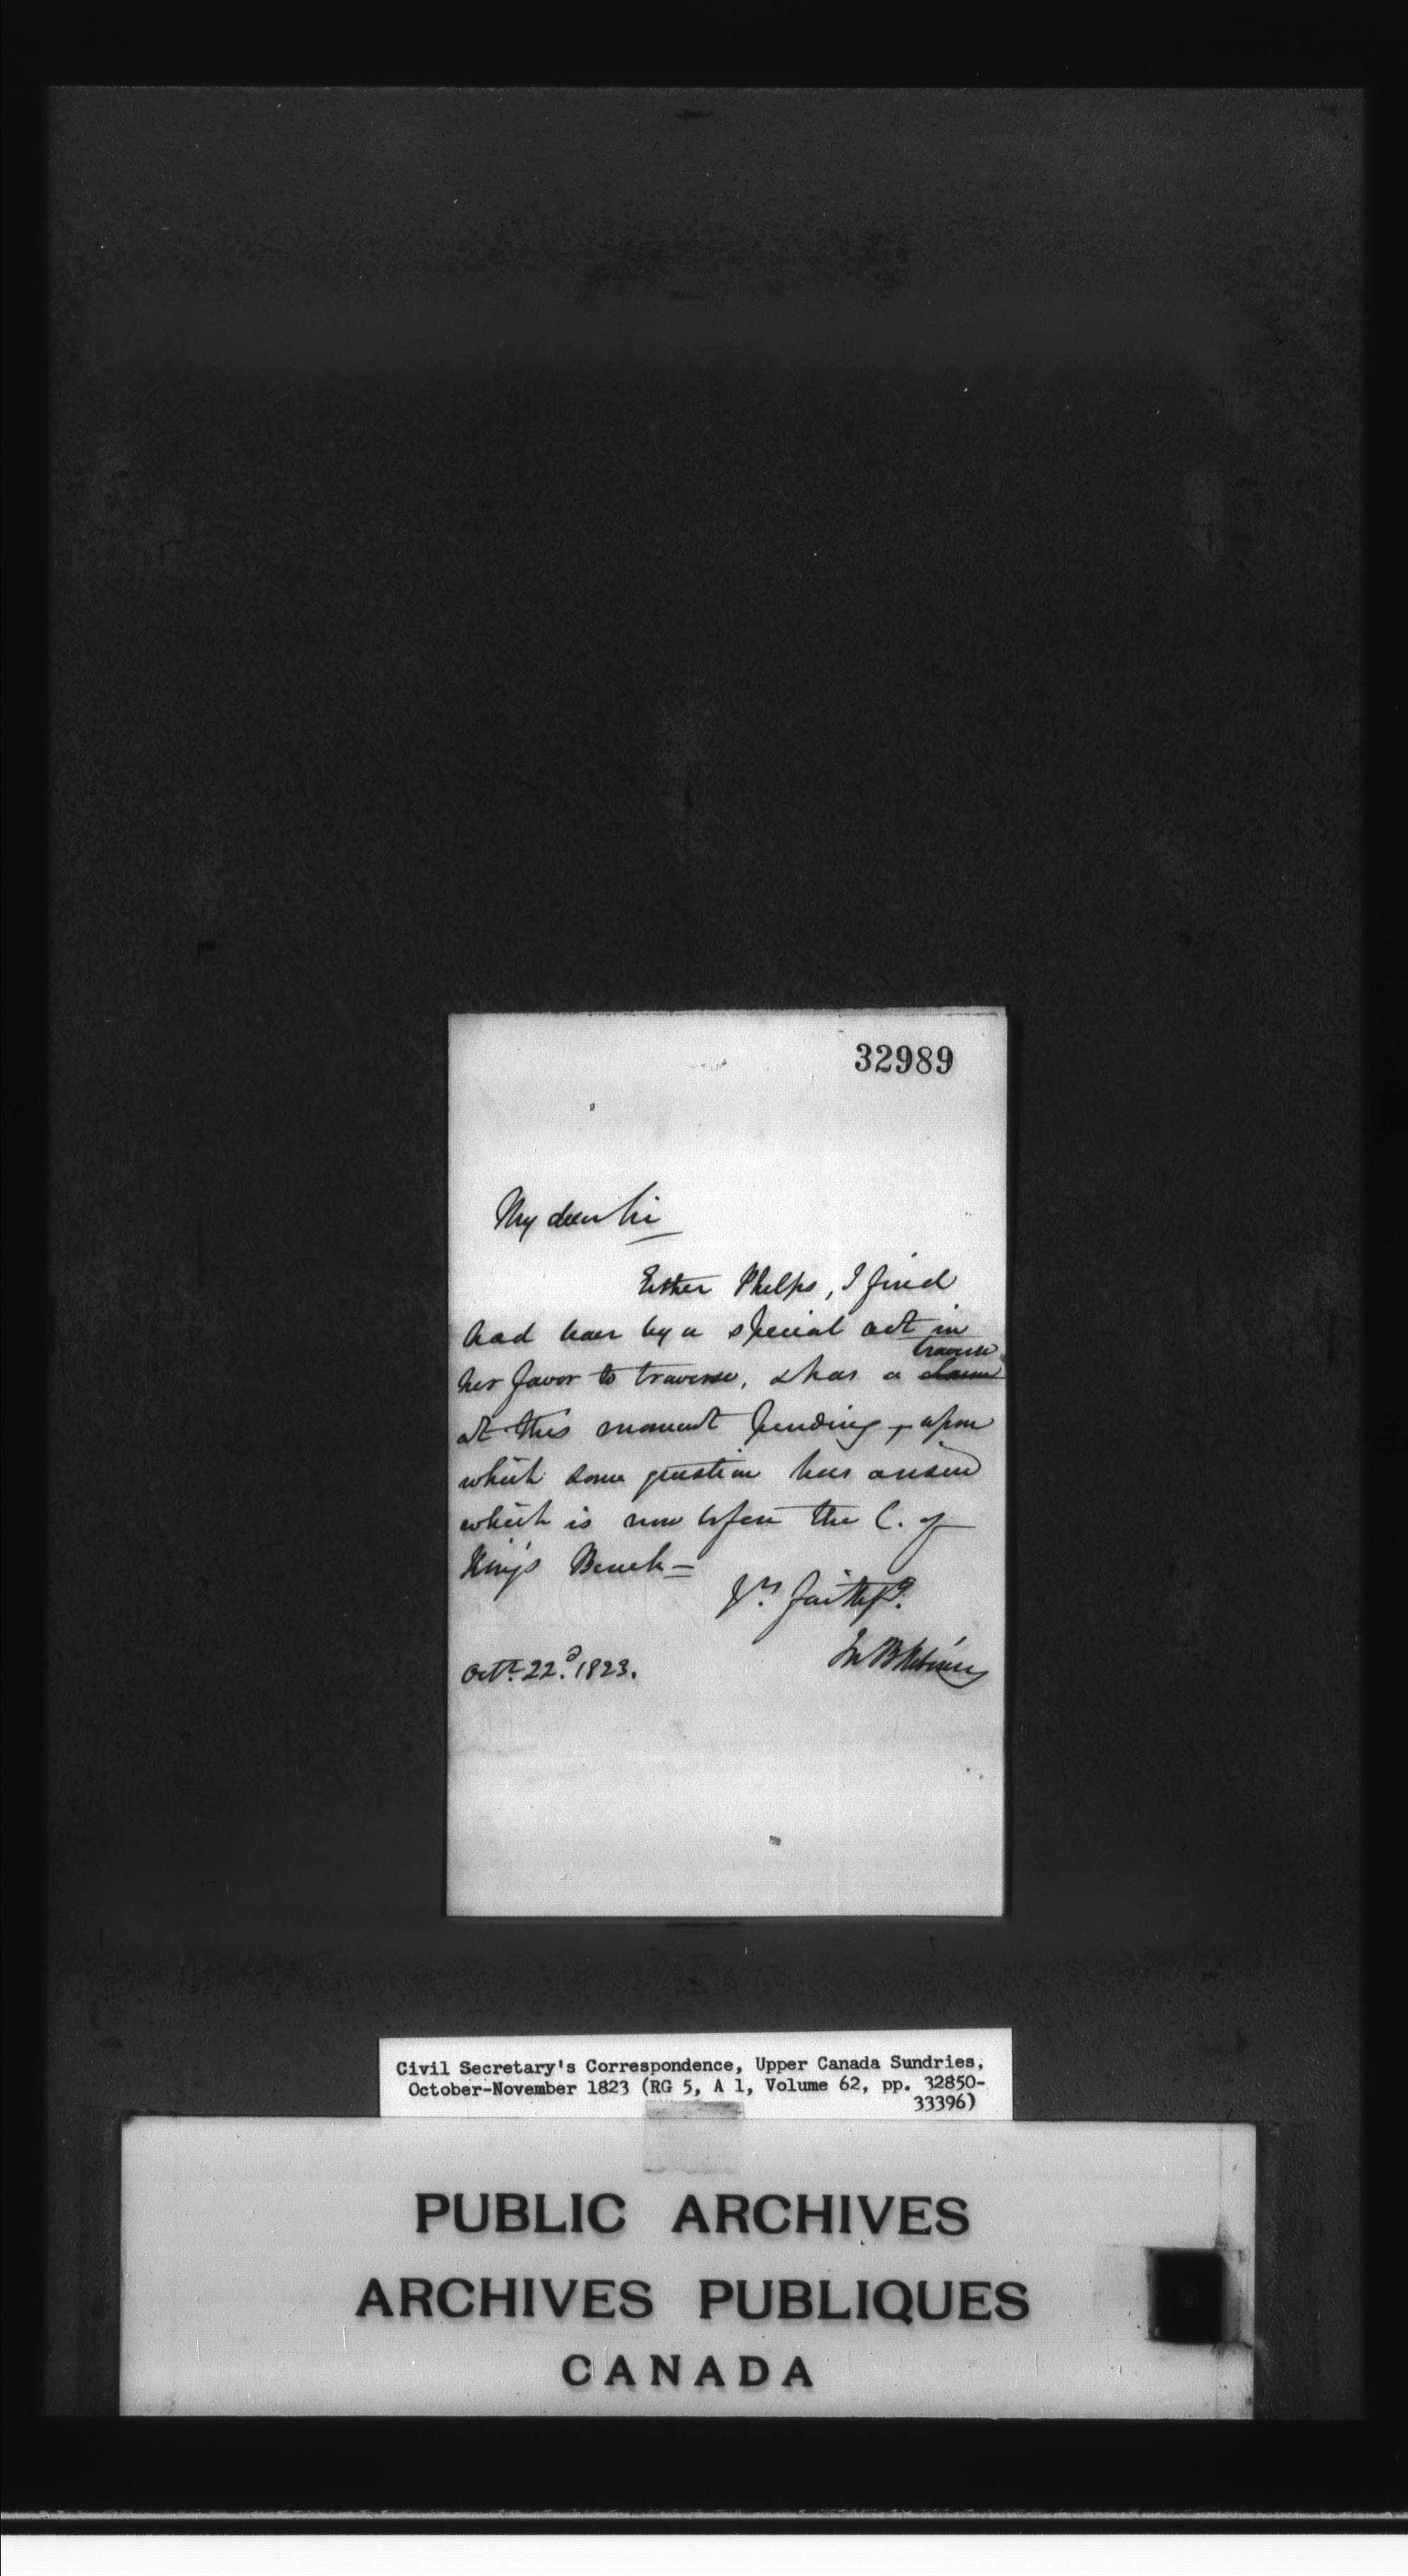 32989
My dear Sir
Esther Phelps, I find
had leave by a special act in
her favor to traverse, & has a traverse
claim
at this moment pending, upon
which some question has arisen
which is now before the C. of
King's Bench =
Yrs. faithfy.
Jn B Robinson
Octr. 22d. 1823.
Civil Secretary's Correspondence, Upper Canada Sundries,
October-November 1823 (RG 5, A 1, Volume 62, pp. 32850-
33396)
PUBLIC ARCHIVES
ARCHIVES PUBLIQUES
CANADA